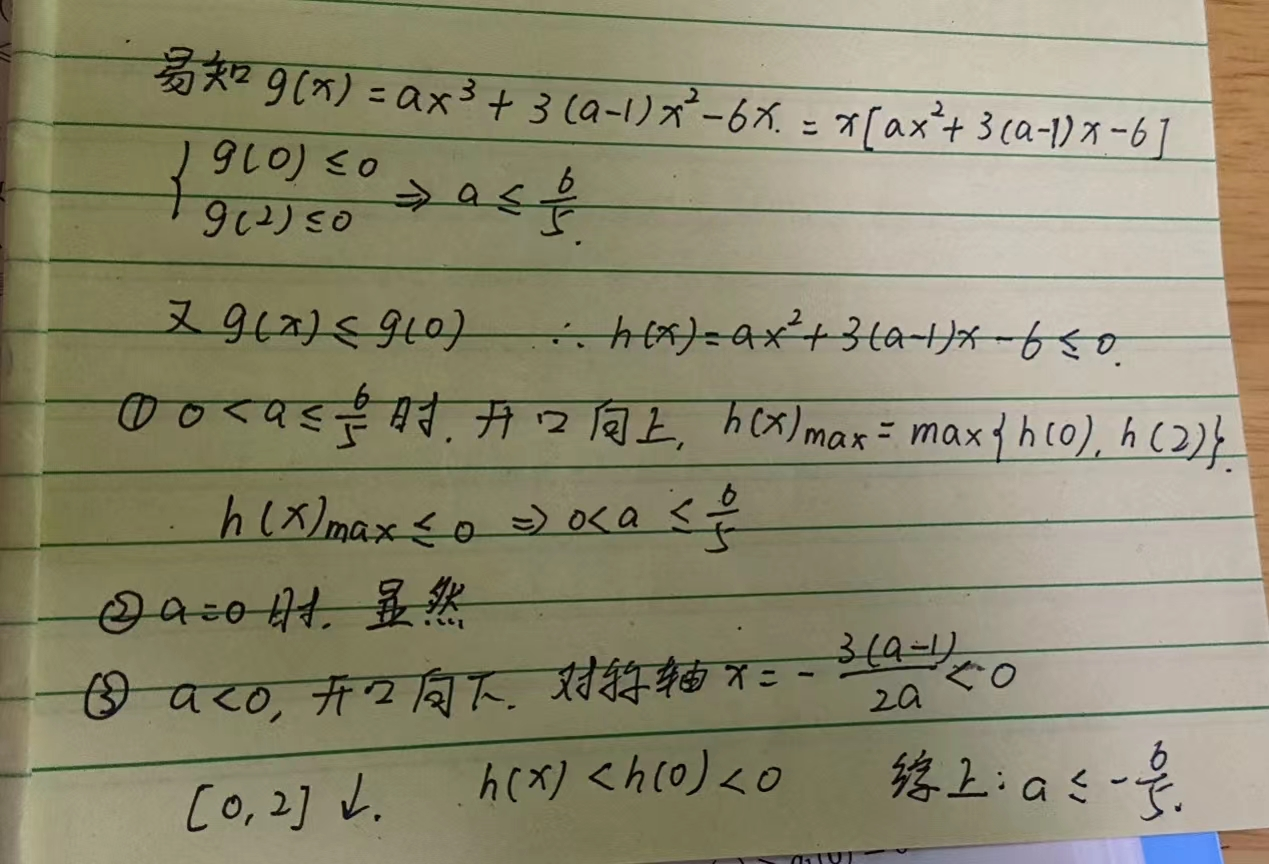 易知 g(x) = ax³ + 3(a-1)x² - 6x. = x[ax² + 3(a-1)x - 6]
{ g(0) ≤ 0
g(2) ≤ 0 ⇒ a ≤ 6/5.
又 g(x) ≤ g(0) ∴ h(x) = ax² + 3(a-1)x - 6 ≤ 0.
① 0 < a ≤ 6/5 时. 开口向上, h(x)max = max{h(0), h(2)}.
h(x)max ≤ 0 ⇒ 0 < a ≤ 6/5
② a = 0 时. 显然
③ a < 0, 开口向下. 对称轴 x = - 3(a-1)/2a < 0
[0, 2] ↓. h(x) < h(0) < 0 综上: a ≤ -6/5.